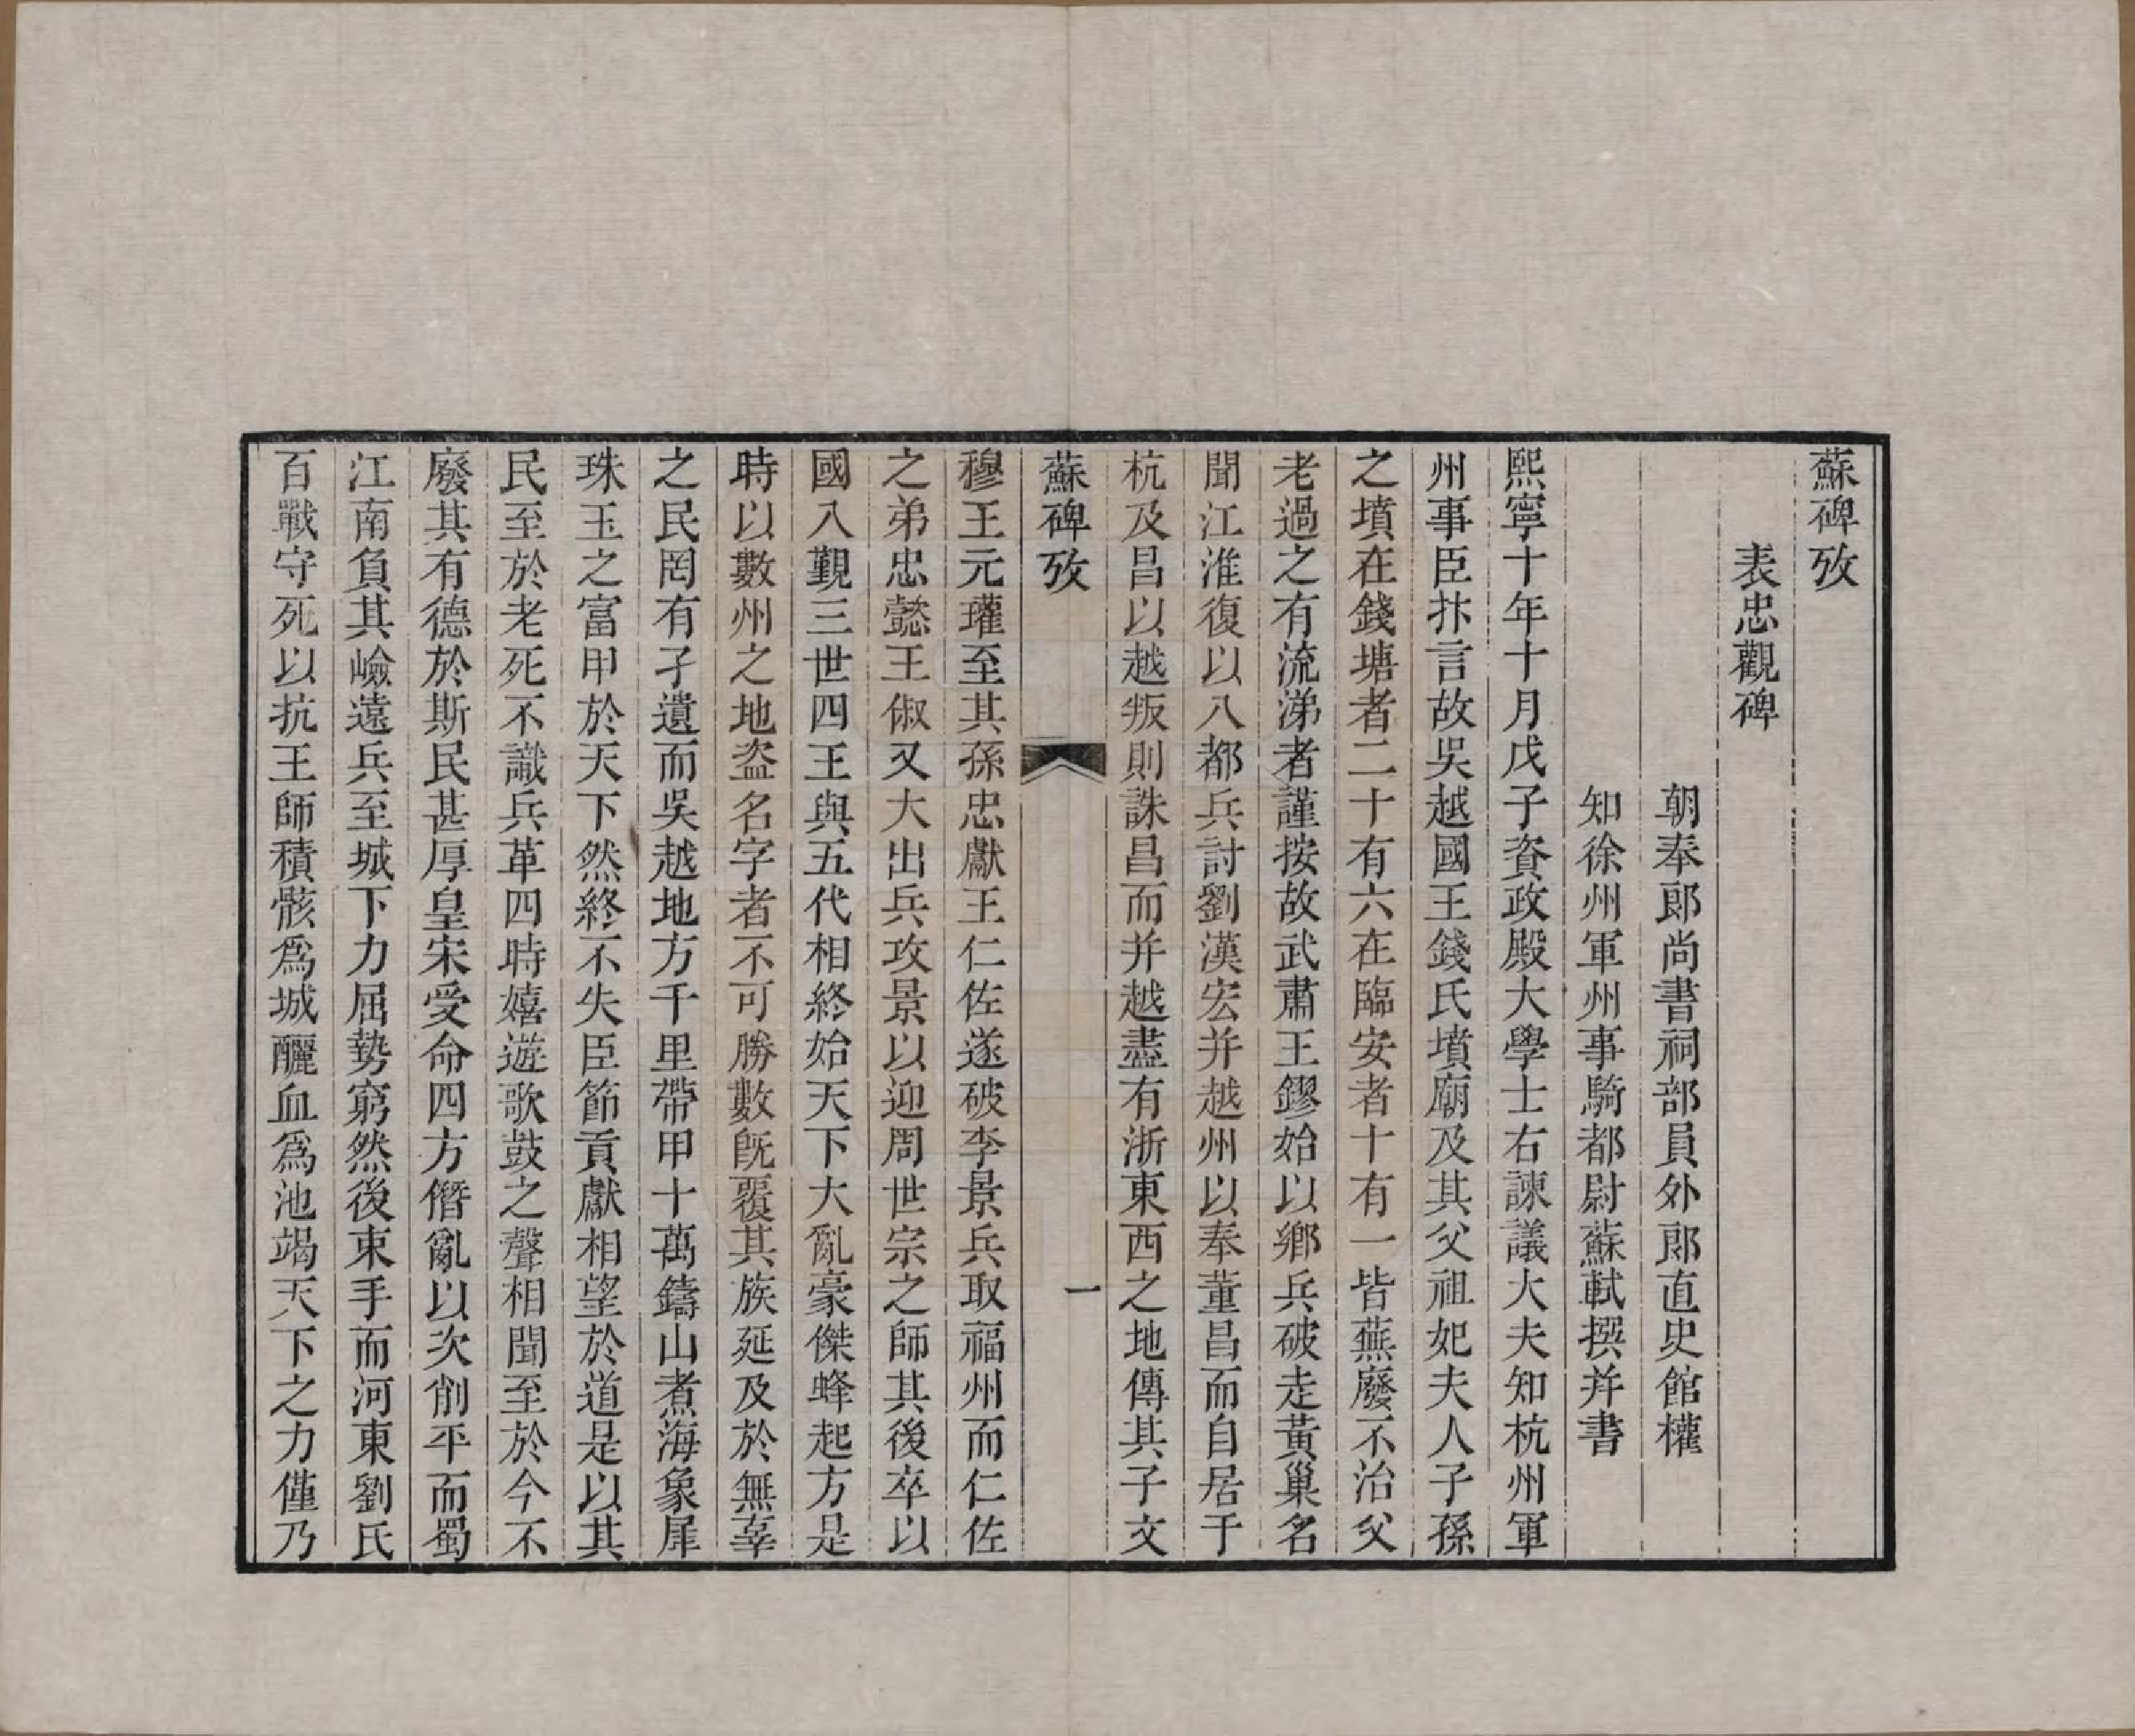 蘇碑攷
表忠觀碑
朝奉郎尚書祠部員外郎直史館權
知徐州軍州事騎都尉蘇軾撰并書
熙寧十年十月戊子資政殿大學士右諫議大夫知杭州軍
州事臣抃言故吳越國王錢氏墳廟及其父祖妃夫人子孫
之墳在錢塘者二十有六在臨安者十有一皆蕪廢不治父
老過之有流涕者謹按故武肅王鏐始以鄉兵破走黃巢名
聞江淮復以八都兵討劉漢宏并越州以奉董昌而自居于
杭及昌以越叛則誅昌而并越盡有浙東西之地傳其子文
蘇碑攷
一
穆王元瓘至其孫忠獻王仁佐遂破李景兵取福州而仁佐
之弟忠懿王俶又大出兵攻景以迎周世宗之師其後卒以
國入覲三世四王與五代相終始天下大亂豪傑蜂起方是
時以數州之地盜名字者不可勝數旣覆其族延及於無辜
之民罔有孑遺而吳越地方千里帶甲十萬鑄山煮海象犀
珠玉之富甲於天下然終不失臣節貢獻相望於道是以其
民至於老死不識兵革四時嬉遊歌鼓之聲相聞至於今不
廢其有德於斯民甚厚皇宋受命四方僭亂以次削平而蜀
江南負其嶮遠兵至城下力屈勢窮然後束手而河東劉氏
百戰守死以抗王師積骸爲城釃血爲池竭天下之力僅乃